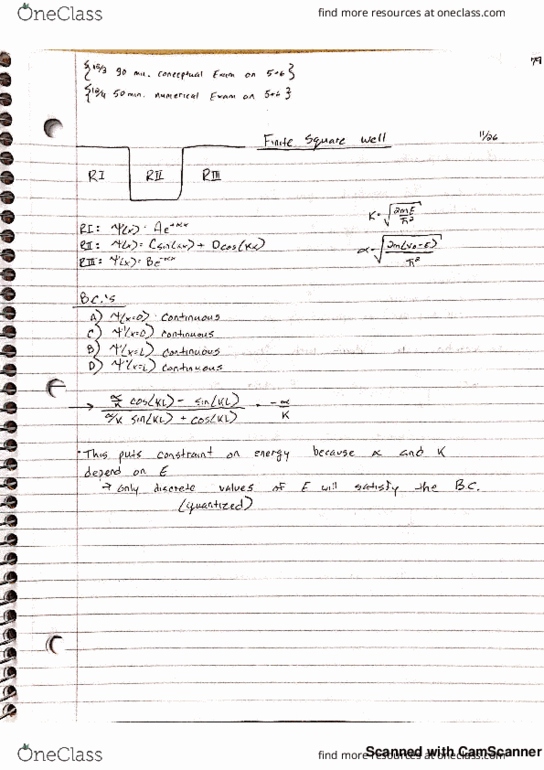 OneClass
find more resources at oneclass.com
{12/3 90 min. Conceptual Exam on 5+6}
{12/4 50 min. numerical Exam on 5+6}
Finite Square well
11/26
RI RII RIII
K = √(2mE/ħ²)
RI: Ψ(x) = Ae^-αx
RII: Ψ(x) = Csin(kx) + Dcos(kx)
α = √(2m(V0-E)/ħ²)
RIII: Ψ(x) = Be^-αx
B.C.'s
A) Ψ(x=0) Continuous
C) Ψ'(x=0) Continuous
B) Ψ(x=L) Continuous
D) Ψ'(x=L) Continuous
→ (α/K cos(KL) - sin(KL)) / (α/K sin(KL) + cos(KL)) = -α/K
• This puts constraint on energy because α and K
depend on E
→ Only discrete values of E will satisfy the B.C.
(quantized)
OneClass
find more resources at oneclass.com
Scanned with CamScanner